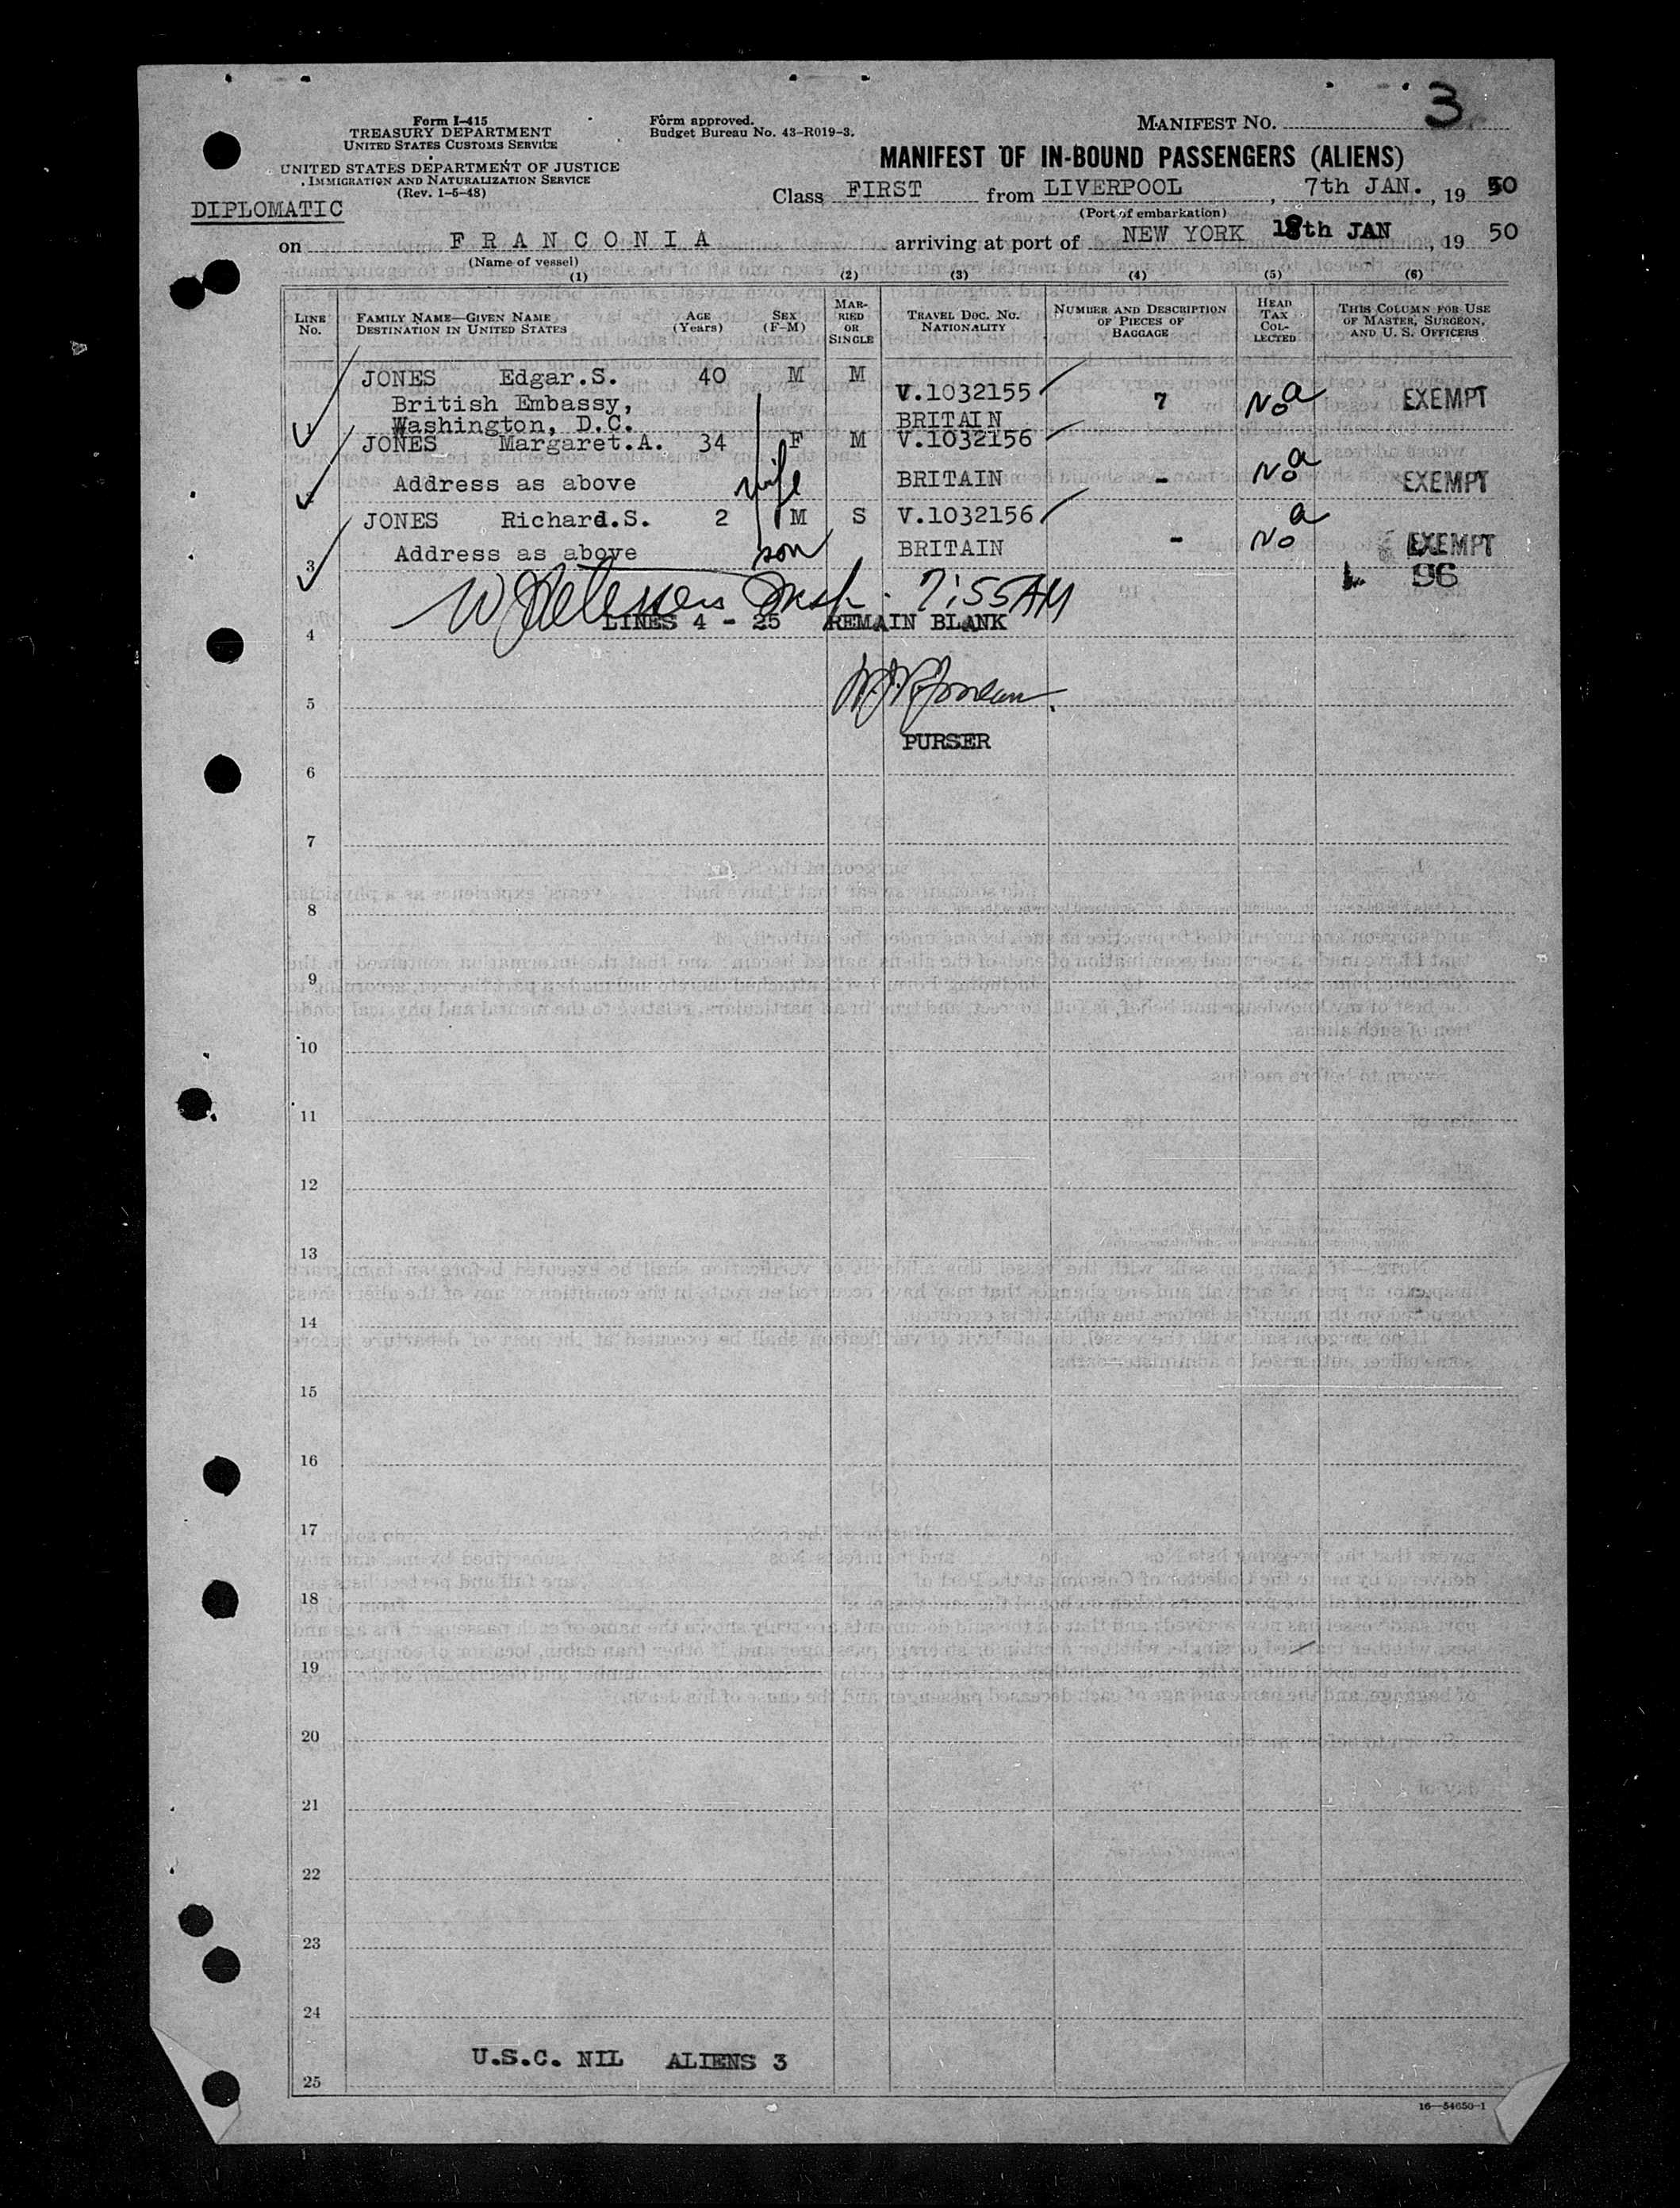 3
Form I-415
TREASURY DEPARTMENT
UNITED STATES CUSTOMS SERVICE
UNITED STATES DEPARTMENT OF JUSTICE
IMMIGRATION AND NATURALIZATION SERVICE
(Rev. 1-5-48)
Form approved.
Budget Bureau No. 43-R019-3.
MANIFEST NO.
MANIFEST OF IN-BOUND PASSENGERS (ALIENS)
DIPLOMATIC
Class FIRST from LIVERPOOL, 7th JAN., 19 50
(Port of embarkation)
on FRANCONIA arriving at port of NEW YORK 18th JAN, 19 50
(Name of vessel)
(1) (2) (3) (4) (5) (6)
LINE No.
FAMILY NAME—GIVEN NAME
DESTINATION IN UNITED STATES
AGE (Years)
SEX (F-M)
MARRIED OR SINGLE
TRAVEL DOC. NO.
NATIONALITY
NUMBER AND DESCRIPTION OF PIECES OF BAGGAGE
HEAD TAX COLLECTED
THIS COLUMN FOR USE OF MASTER, SURGEON, AND U. S. OFFICERS
JONES Edgar.S. 40 M M V.1032155 7 No a EXEMPT
British Embassy,
Washington, D.C. BRITAIN
JONES Margaret.A. 34 F M V.1032156
wife
Address as above BRITAIN - No a EXEMPT
JONES Richard.S. 2 M S V.1032156
3 Address as above son BRITAIN - No a EXEMPT
96
Insp. 7:55AM
4 LINES 4 - 25 REMAIN BLANK
5
PURSER
6
7
8
9
10
11
12
13
14
15
16
17
18
19
20
21
22
23
24
U.S.C. NIL ALIENS 3
25
16—54650-1